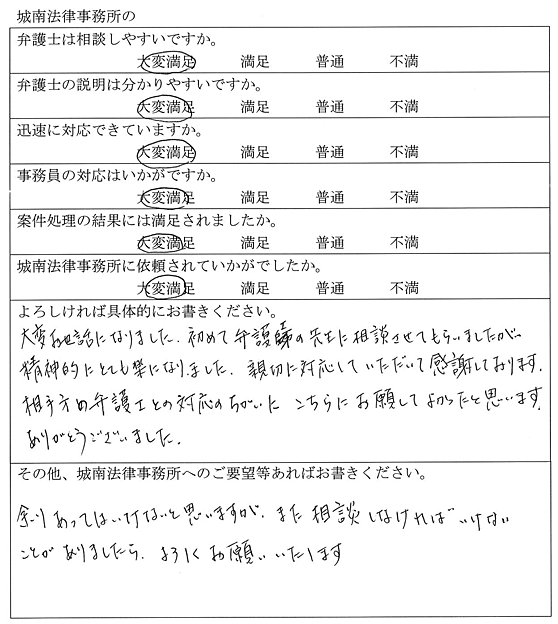 城南法律事務所の
弁護士は相談しやすいですか。
大変満足 満足 普通 不満
弁護士の説明は分かりやすいですか。
大変満足 満足 普通 不満
迅速に対応できていますか。
大変満足 満足 普通 不満
事務員の対応はいかがですか。
大変満足 満足 普通 不満
案件処理の結果には満足されましたか。
大変満足 満足 普通 不満
城南法律事務所に依頼されていかがでしたか。
大変満足 満足 普通 不満
よろしければ具体的にお書きください。
大変お世話になりました。初めて弁護士の先生に相談させてもらいましたが、
精神的にとても楽になりました。親切に対応していただいて感謝しております。
相手方の弁護士との対応のちがいに こちらにお願してよかったと思います。
ありがとうございました。
その他、城南法律事務所へのご要望等あればお書きください。
余りあってはいけないと思いますが、また相談しなければいけない
ことがありましたら、よろしくお願いいたします